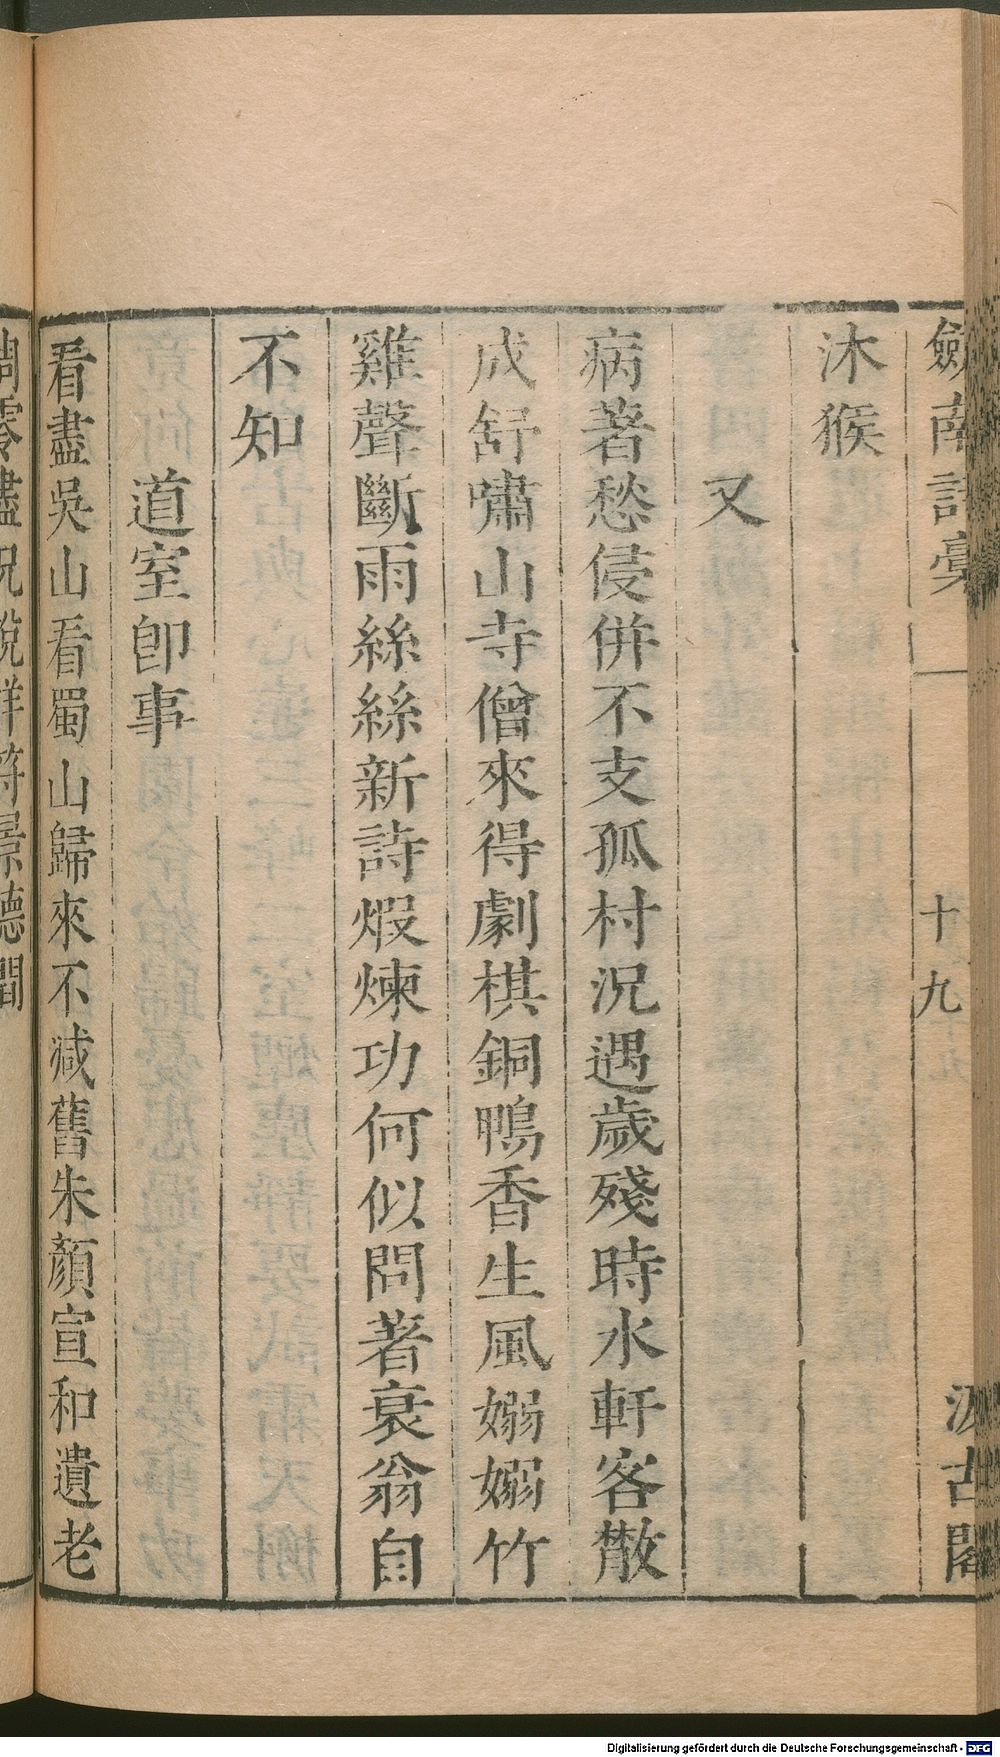 劒南詩稾
十九
汲古閣
沐猴
又
病著愁侵併不支孤村況遇歲殘時水軒客散
成舒嘯山寺僧來得劇棋銅鴨香生風嫋嫋竹
雞聲斷雨絲絲新詩煅煉功何似問著衰翁自
不知
道室卽事
看盡吳山看蜀山歸來不减舊朱顏宣和遺老
凋零盡況說祥符景德間
Digitalisierung gefördert durch die Deutsche Forschungsgemeinschaft - DFG